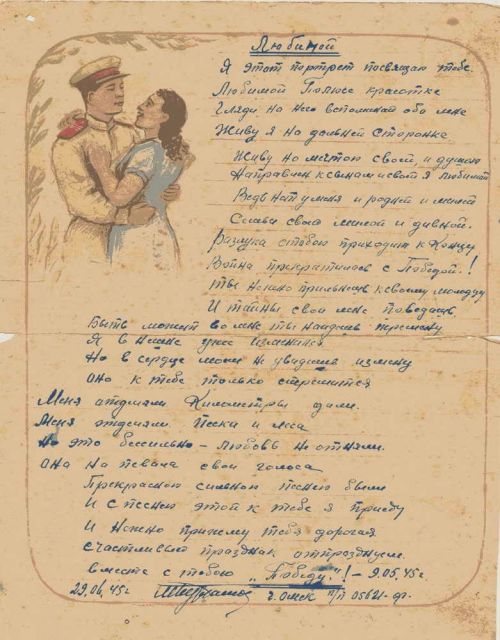 Любимой
Я этот портрет посвящаю тебе.
Любимой Полюсе красотке
Гляди на него вспоминай обо мне
Живу я на дольней сторонке.
Живу но мечтою своей, и душою
Направлен к сынам и своей я любимой
Ведь нет у меня и родней и милей
Славы своей милой и дивной.
Разлука с тобою приходит к концу
Война прекратилась с Победой.!
Ты нежно прильнешь к своему молодцу
И тайны свои мне поведаешь
Быть может во мне ты найдешь перемену
Я внешне уже изменился
Но в сердце моем не увидишь измену
Оно к тебе только стремится
Меня отделяли Километры дали.
Меня отделяли. Пески и леса
Но это бессильно – Любовь не отняли.
Она на певала свои голоса
Прекрасной сильной песней были
И с песней этой к тебе я приеду
И Нежно прижму тебя дорогая
Счастливый праздник отпразднуем.
вместе с тобою "Победу."! – 9.05.45 г.
29.06.45 г. г. Омск п/п 05621-